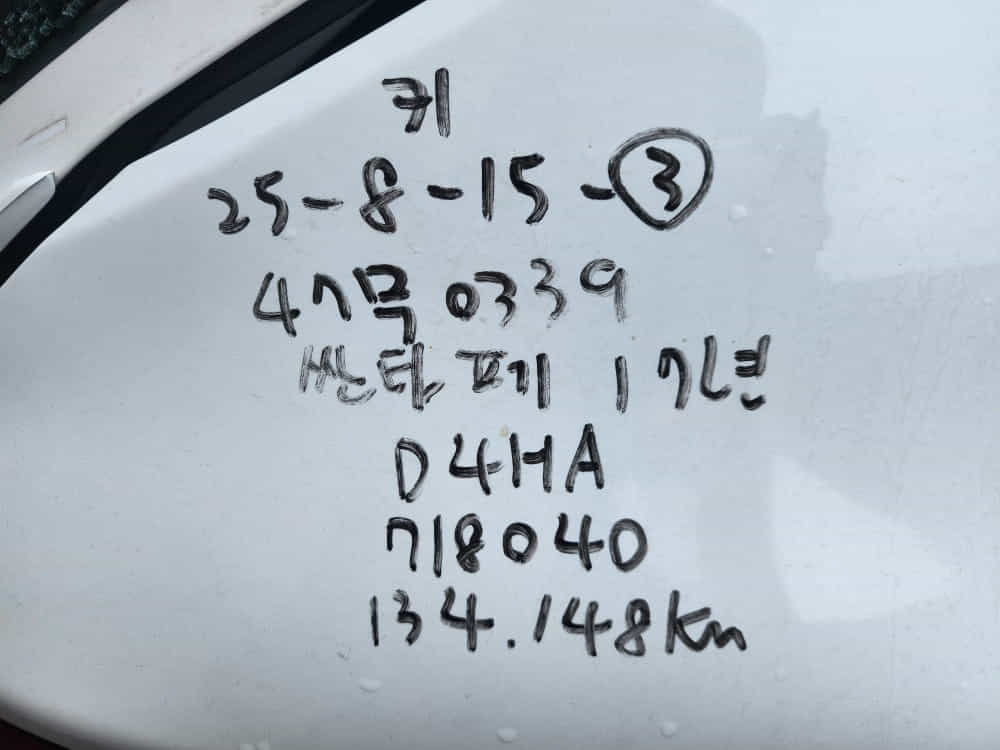 키
25-8-15-③
47목0339
싼타페 17년
D4HA
718040
134.148Km